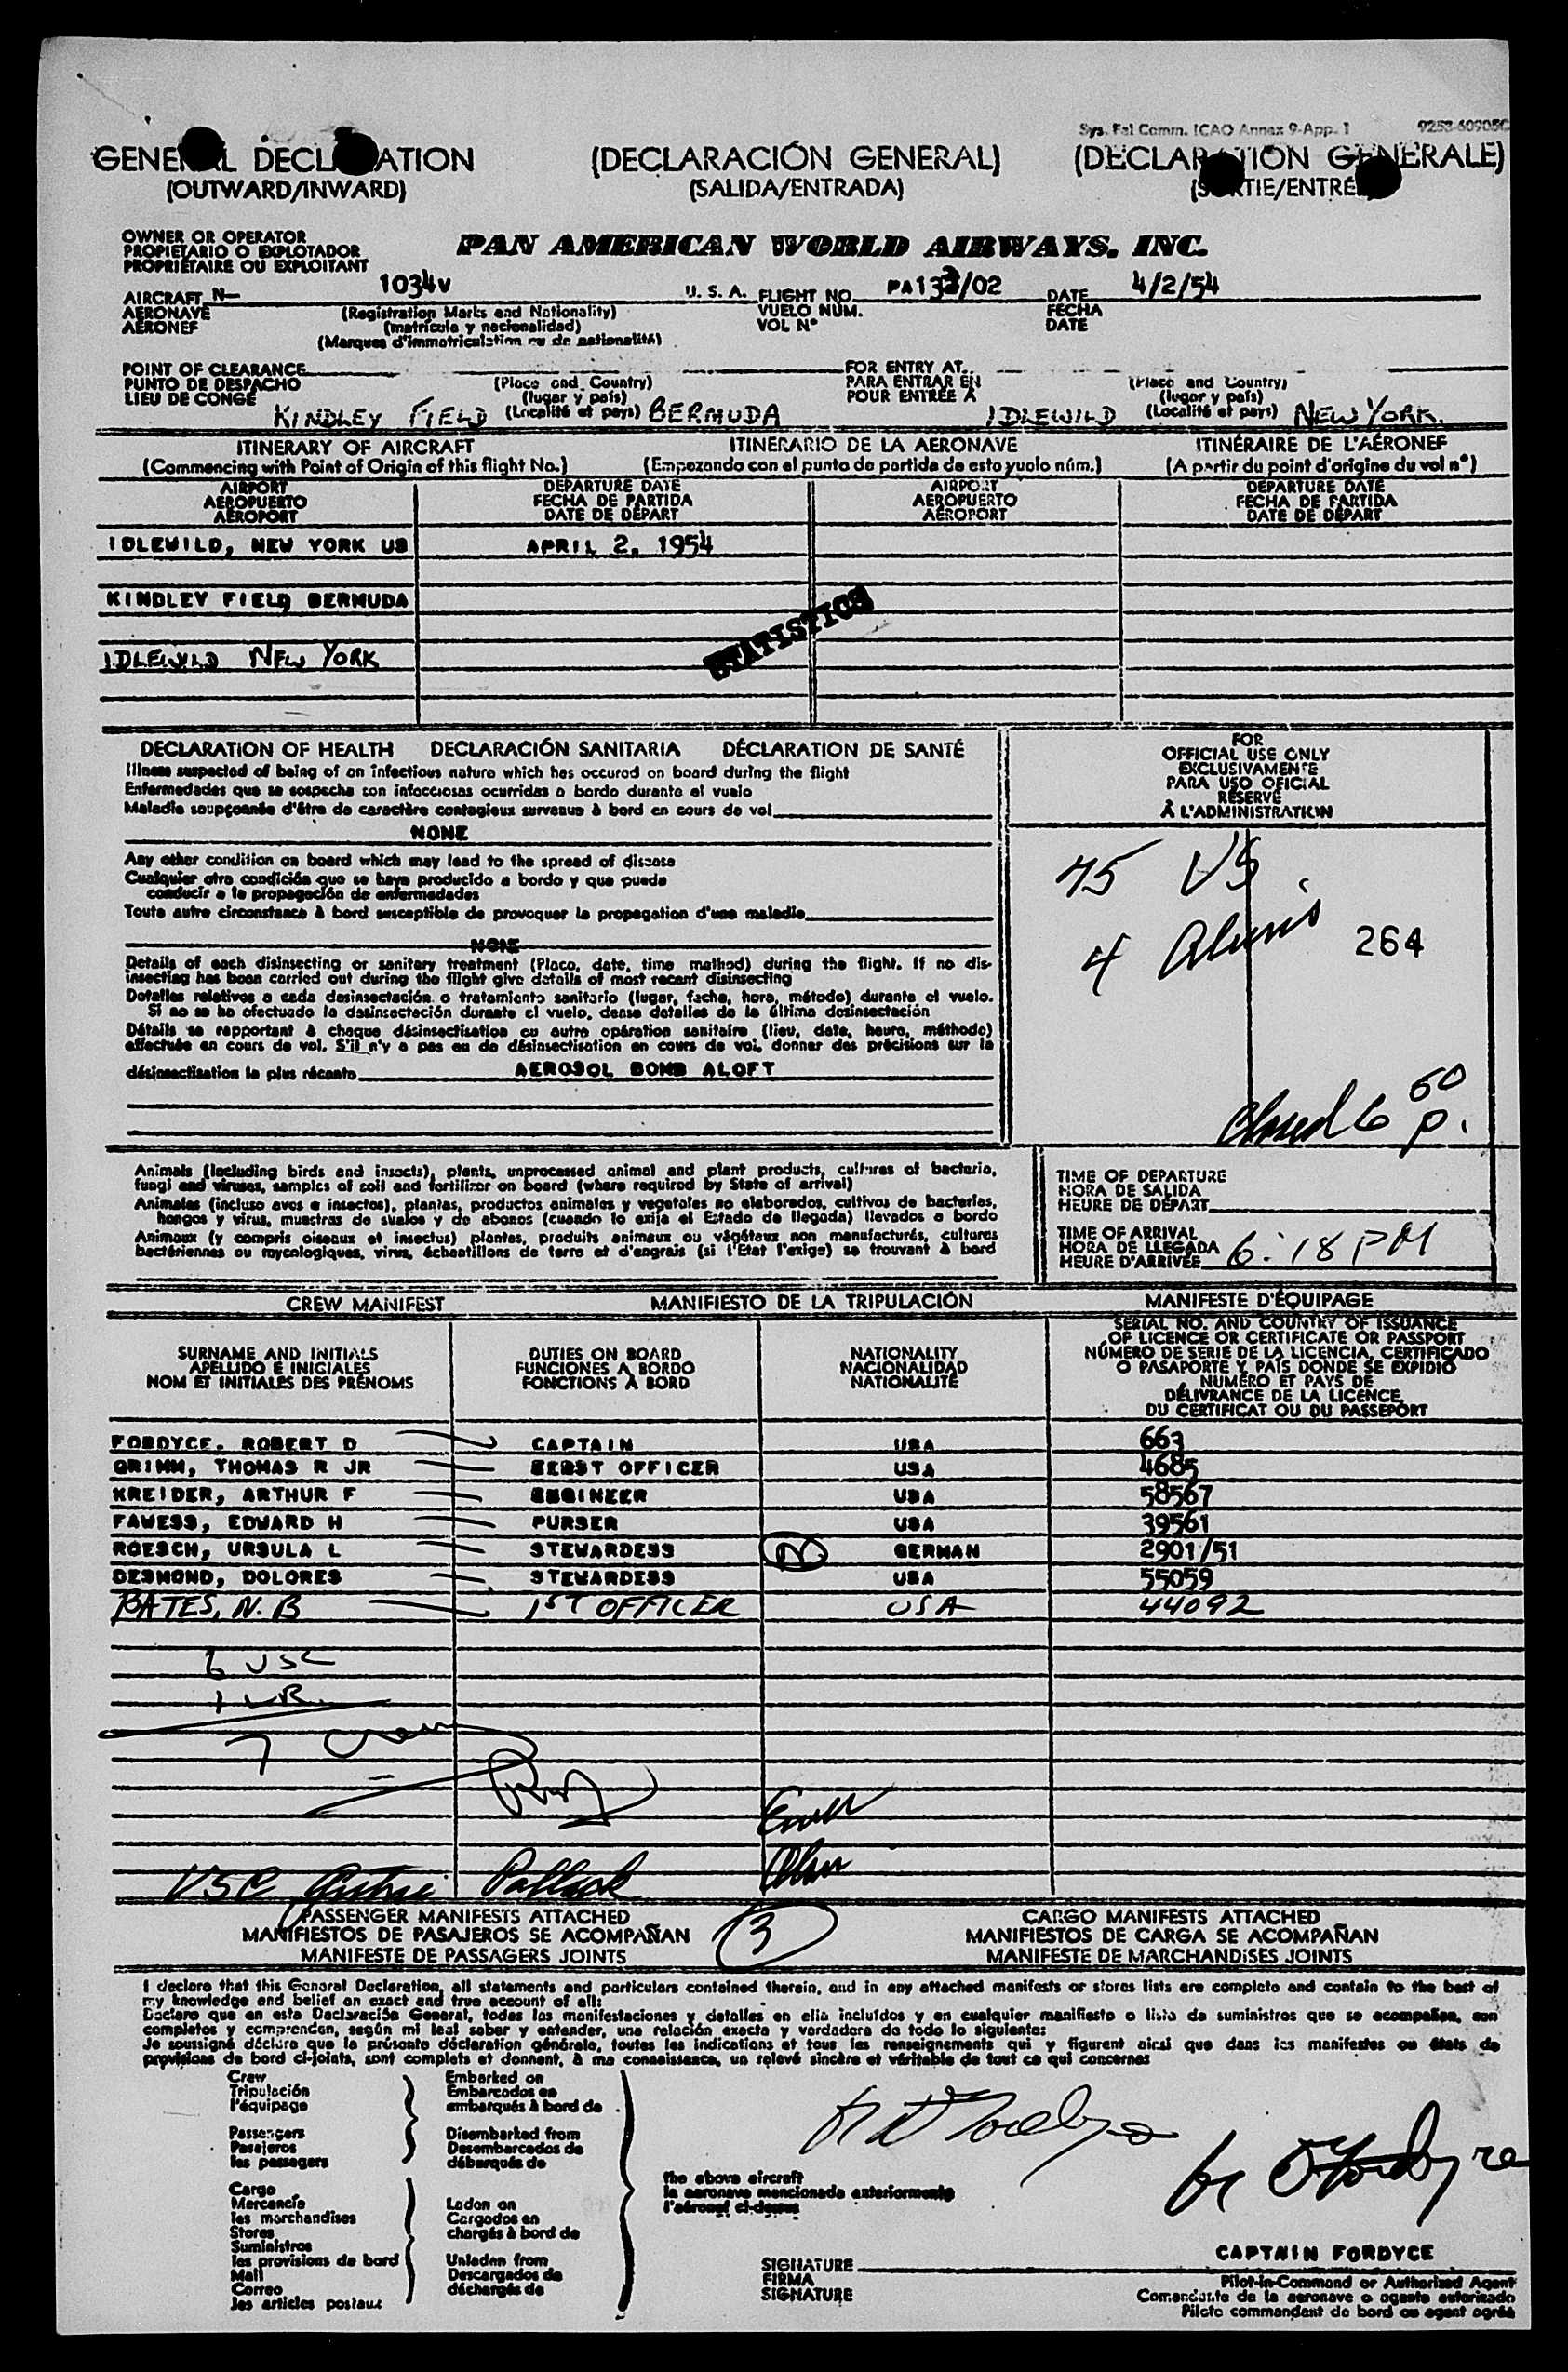 Sys. Fal Comm. ICAO Annex 9-App. 1
GENERAL DECLARATION (DECLARACIÓN GENERAL) (DECLARATION GENERALE)
(OUTWARD/INWARD) (SALIDA/ENTRADA) (SORTIE/ENTRÉE)
OWNER OR OPERATOR
PROPIETARIO O EXPLOTADOR
PROPRIÉTAIRE OU EXPLOITANT
PAN AMERICAN WORLD AIRWAYS, INC.
AIRCRAFT N- 1034V U. S. A. FLIGHT NO. PA133/02 DATE 4/2/54
AERONAVE (Registration Marks and Nationality) VUELO NUM. FECHA
AÉRONEF (matrícula y nacionalidad) VOL N° DATE
(Marques d'immatriculation ou de nationalité)
POINT OF CLEARANCE FOR ENTRY AT
PUNTO DE DESPACHO (Place and Country) PARA ENTRAR EN (Place and Country)
LIEU DE CONGÉ (lugar y país) POUR ENTRÉE A (lugar y país)
KINDLEY FIELD (Localité et pays) BERMUDA IDLEWILD (Localité et pays) NEW YORK.
ITINERARY OF AIRCRAFT ITINERARIO DE LA AERONAVE ITINÉRAIRE DE L'AÉRONEF
(Commencing with Point of Origin of this flight No.) (Empezando con el punto de partida de esto yuolo núm.) (A partir du point d'origine du vol n°)
AIRPORT DEPARTURE DATE AIRPORT DEPARTURE DATE
AEROPUERTO FECHA DE PARTIDA AEROPUERTO FECHA DE PARTIDA
AÉROPORT DATE DE DÉPART AÉROPORT DATE DE DÉPART
IDLEWILD, NEW YORK US APRIL 2, 1954
KINDLEY FIELD BERMUDA
STATISTICS
IDLEWILD NEW YORK
DECLARATION OF HEALTH DECLARACIÓN SANITARIA DÉCLARATION DE SANTÉ
Illness suspected of being of an infectious nature which has occured on board during the flight
Enfermedades que se sospecha son infecciosas ocurridas a bordo durante el vuelo
Maladie soupçonnée d'être de caractère contagieux survenue à bord en cours de vol
NONE
Any other condition on board which may lead to the spread of disease
Cualquier otra condición que se haya producido a bordo y que pueda
conducir a la propagación de enfermedades
Toute autre circonstance à bord susceptible de provoquer la propagation d'une maladie
NONE
Details of each disinsecting or sanitary treatment (Place, date, time method) during the flight. If no dis-
insecting has been carried out during the flight give details of most recent disinsecting
Detalles relativos a cada desinsectación o tratamiento sanitario (lugar, fecha, hora, método) durante el vuelo.
Si no se ha efectuado la desinsectación durante el vuelo, dense detalles de la última desinsectación
Détails se rapportant à chaque désinsectisation ou autre opération sanitaire (lieu, date, heure, méthode)
effectuée en cours de vol. S'il n'y a pas eu de désinsectisation en cours de vol, donner des précisions sur la
désinsectisation la plus récente AEROSOL BOMB ALOFT
FOR
OFFICIAL USE ONLY
EXCLUSIVAMENTE
PARA USO OFICIAL
RÉSERVÉ
À L'ADMINISTRATION
75 US
4 Aliens 264
Closed 6 50 P.
Animals (Including birds and insects), plants, unprocessed animal and plant products, cultures of bacteria,
fungi and viruses, samples of soil and fertilizer on board (where required by State of arrival)
Animales (incluso aves e insectos), plantas, productos animales y vegetales no elaborados, cultivos de bacterias,
hongos y virus, muestras de suelos y de abonos (cuando lo exija el Estado de llegada) llevados a bordo
Animaux (y compris oiseaux et insectes) plantes, produits animaux ou végétaux non manufacturés, cultures
bactériennes ou mycologiques, virus, échantillons de terre et d'engrais (si l'Etat l'exige) se trouvant à bord
TIME OF DEPARTURE
HORA DE SALIDA
HEURE DE DÉPART
TIME OF ARRIVAL
HORA DE LLEGADA
HEURE D'ARRIVÉE 6:18 PM
CREW MANIFEST MANIFIESTO DE LA TRIPULACIÓN MANIFESTE D'ÉQUIPAGE
SURNAME AND INITIALS
APELLIDO E INICIALES
NOM ET INITIALES DES PRÉNOMS
DUTIES ON BOARD
FUNCIONES A BORDO
FONCTIONS À BORD
NATIONALITY
NACIONALIDAD
NATIONALITÉ
SERIAL NO. AND COUNTRY OF ISSUANCE
OF LICENCE OR CERTIFICATE OR PASSPORT
NÚMERO DE SERIE DE LA LICENCIA, CERTIFICADO
O PASAPORTE Y PAÍS DONDE SE EXPIDIÓ
NUMÉRO ET PAYS DE
DÉLIVRANCE DE LA LICENCE,
DU CERTIFICAT OU DU PASSEPORT
FORDYCE, ROBERT D CAPTAIN USA 663
GRIMM, THOMAS R JR FIRST OFFICER USA 4685
KREIDER, ARTHUR F ENGINEER USA 58567
FAWESS, EDWARD H PURSER USA 39561
ROESCH, URSULA L STEWARDESS GERMAN 2901/51
DESMOND, DOLORES STEWARDESS USA 55059
BATES, N. B 1ST OFFICER USA 44092
6 USC
1 LR.
7 Crew
USC
PASSENGER MANIFESTS ATTACHED CARGO MANIFESTS ATTACHED
MANIFIESTOS DE PASAJEROS SE ACOMPAÑAN 3 MANIFIESTOS DE CARGA SE ACOMPAÑAN
MANIFESTE DE PASSAGERS JOINTS MANIFESTE DE MARCHANDISES JOINTS
I declare that this General Declaration, all statements and particulars contained therein, and in any attached manifests or stores lists are complete and contain to the best of
my knowledge and belief an exact and true account of all:
Declaro que en esta Declaración General, todas las manifestaciones y detalles en ella incluídos y en cualquier manifiesto o lista de suministros que se acompañen, son
completos y comprenden, según mi leal saber y entender, una relación exacta y verdadera de todo lo siguiente:
Je soussigné déclare que la présente déclaration générale, toutes les indications et tous les renseignements qui y figurent ainsi que dans les manifestes ou états de
provisions de bord ci-joints, sont complets et donnent, à ma connaissance, un relevé sincère et véritable de tout ce qui concerne:
Crew
Tripulación
l'équipage
Passengers
Pasajeros
les passagers
Cargo
Mercancía
les marchandises
Stores
Suministros
les provisions de bord
Mail
Correo
les articles postaux
Embarked on
Embarcados en
embarqués à bord de
Disembarked from
Desembarcados de
débarqués de
Laden on
Cargados en
chargés à bord de
Unladen from
Descargados de
déchargés de
the above aircraft
la aeronave mencionada anteriormente
l'aéronef ci-dessus
CAPTAIN FORDYCE
SIGNATURE
FIRMA
SIGNATURE
Pilot-in-Command or Authorized Agent
Comandante de la aeronave o agente autorizado
Pilote commandant de bord ou agent agréé